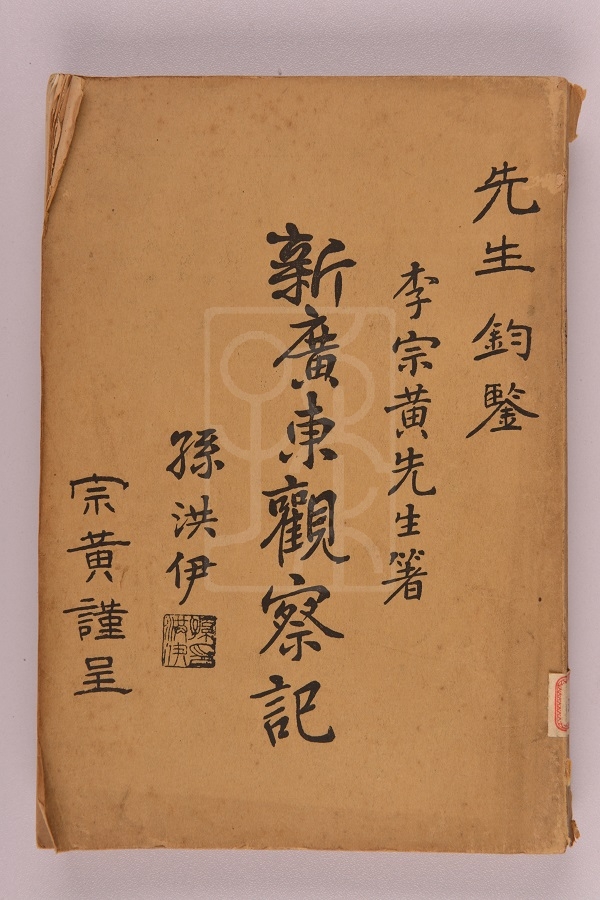 先生鈞鑒
李宗黄先生箸
新廣東觀察記
孫洪伊
宗黄謹呈